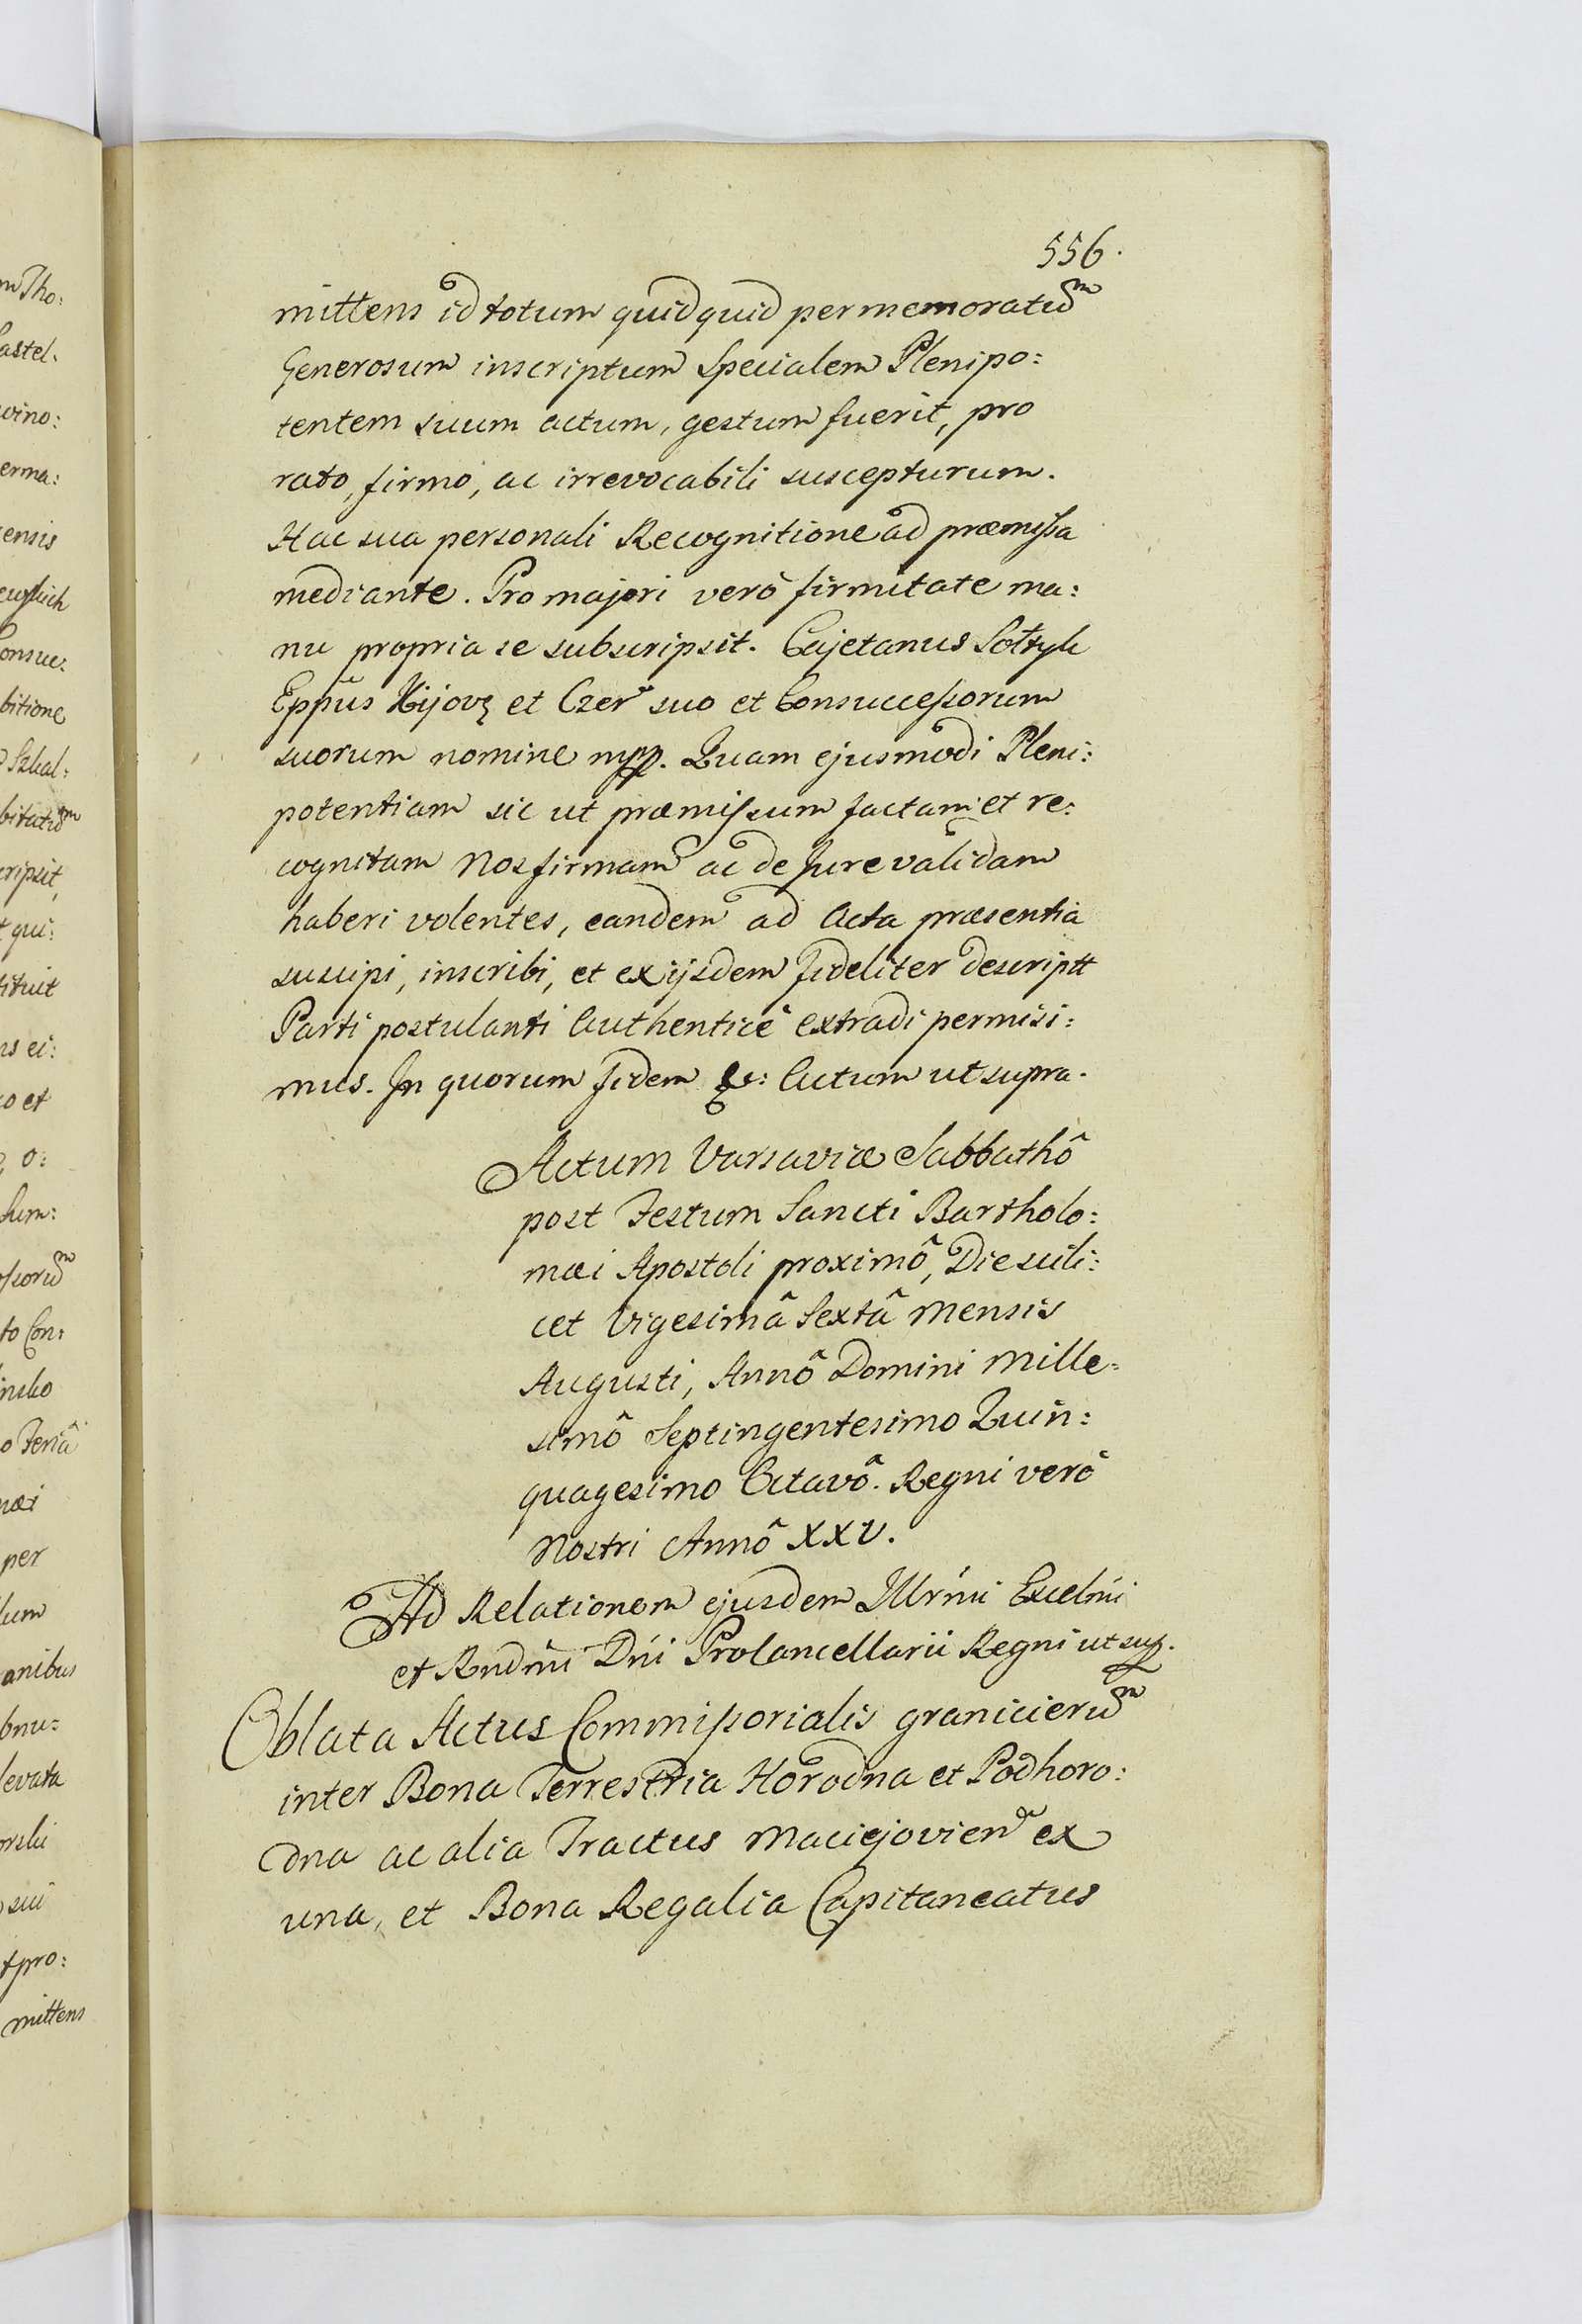 556.
mittens id totum quidquid per memoratu͞m
Generosum inscriptum Specialem Plenipo:
tentem suum actum, gestum fuerit, pro
rato, firmo, ac irrevocabili suscepturum.
Hac sua personali Recognitione ad præmissa
mediante. Pro majori verò firmitate ma:
nu propria se subscripsit. Cajetanus Sołtyk
Eppus Kijov: et Czer suo et Consuccessorum
suorum nomine mpp. Quam ejusmodi Pleni:
potentiam sic ut præmissum factam et re:
cognitam Nos firmam ac de Jure validam
haberi volentes, eandem ad Acta præsentia
suscipi, inscribi, et ex ijsdem fideliter descriptt
Parti postulanti Authenticè extradi permisi:
mus. In quorum fidem &: Actum ut supra.
Actum Varsaviæ Sabbathô
post Festum Sancti Bartholo:
mæi Apostoli proximô, Die scili:
cet Vigesimâ Sextâ Mensis
Augusti, Annô Domini Mille:
simô Septingentesimo Quin:
quagesimo Octavô. Regni verò
Nostri Annô XXV.
Ad Relationem ejusdem Illrmi Excelmi
et Rndmi Dni ProCancellarii Regni ut sup.
Oblata Actus Commissorialis granicieru͞m
inter Bona Terrestria Horodna et Podhoro:
dna ac alia Tractus Maciejovien ex
una, et Bona Regalia Capitaneatus
mTho:
astel.
vino:
erma:
ensis
onsue.
bitione
Szkal:
bitatu͞m
cripsit,
t qui:
tituit
ns ei:
co et
o:
Sum:
ssoru͞m
to Con:
insko
o Feriâ
mæi
per
lum
anibus
bnu:
levata
orski
sui
t pro:
mittens